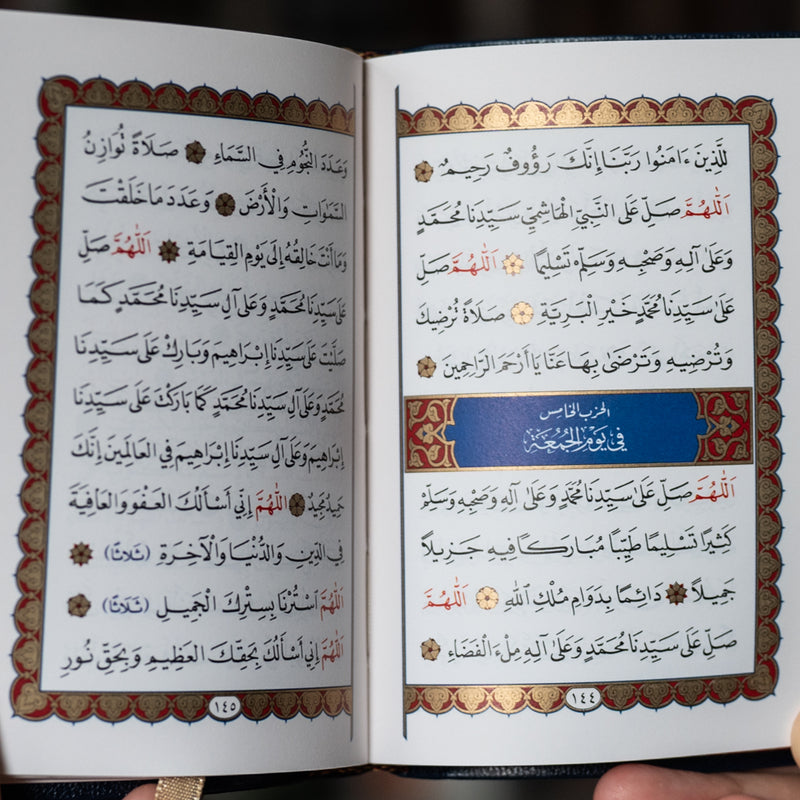 لِلَّذِينَ ءَامَنُوا رَبَّنَا إِنَّكَ رَؤُوفٌ رَحِيمٌ
اَللّٰهُمَّ صَلِّ عَلَى النَّبِيِّ الْهَاشِمِيِّ سَيِّدِنَا مُحَمَّدٍ
وَعَلَىٰ آلِهِ وَصَحْبِهِ وَسَلِّمْ تَسْلِيمًا اَللّٰهُمَّ صَلِّ
عَلَىٰ سَيِّدِنَا مُحَمَّدٍ خَيْرِ الْبَرِيَّةِ صَلَاةً تُرْضِيكَ
وَتُرْضِيهِ وَتَرْضَىٰ بِهَا عَنَّا يَا أَرْحَمَ الرَّاحِمِينَ
الحزب الخامس
فِي يَوْمِ الْجُمُعَةِ
اَللّٰهُمَّ صَلِّ عَلَىٰ سَيِّدِنَا مُحَمَّدٍ وَعَلَىٰ آلِهِ وَصَحْبِهِ وَسَلِّمْ
كَثِيرًا تَسْلِيمًا طَيِّبًا مُبَارَكًا فِيهِ جَزِيلاً
جَمِيلاً دَائِمًا بِدَوَامِ مُلْكِ اللهِ اَللّٰهُمَّ
صَلِّ عَلَىٰ سَيِّدِنَا مُحَمَّدٍ وَعَلَىٰ آلِهِ مِلْءَ الْفَضَاءِ
١٤٤
وَعَدَدَ النُّجُومِ فِي السَّمَاءِ صَلَاةً تُوَازِنُ
السَّمٰوَاتِ وَالْأَرْضَ وَعَدَدَ مَا خَلَقْتَ
وَمَا أَنْتَ خَالِقُهُ إِلَى يَوْمِ الْقِيَامَةِ اَللّٰهُمَّ صَلِّ
عَلَىٰ سَيِّدِنَا مُحَمَّدٍ وَعَلَىٰ آلِ سَيِّدِنَا مُحَمَّدٍ كَمَا
صَلَّيْتَ عَلَىٰ سَيِّدِنَا إِبْرَاهِيمَ وَبَارِكْ عَلَىٰ سَيِّدِنَا
مُحَمَّدٍ وَعَلَىٰ آلِ سَيِّدِنَا مُحَمَّدٍ كَمَا بَارَكْتَ عَلَىٰ سَيِّدِنَا
إِبْرَاهِيمَ وَعَلَىٰ آلِ سَيِّدِنَا إِبْرَاهِيمَ فِي الْعَالَمِينَ إِنَّكَ
حَمِيدٌ مَجِيدٌ اَللّٰهُمَّ إِنِّي أَسْأَلُكَ الْعَفْوَ وَالْعَافِيَةَ
فِي الدِّينِ وَالدُّنْيَا وَالْآخِرَةِ (ثَلَاثًا)
اَللّٰهُمَّ اسْتُرْنَا بِسِتْرِكَ الْجَمِيلِ (ثَلَاثًا)
اَللّٰهُمَّ إِنِّي أَسْأَلُكَ بِحَقِّكَ الْعَظِيمِ وَبِحَقِّ نُورِ
١٤٥